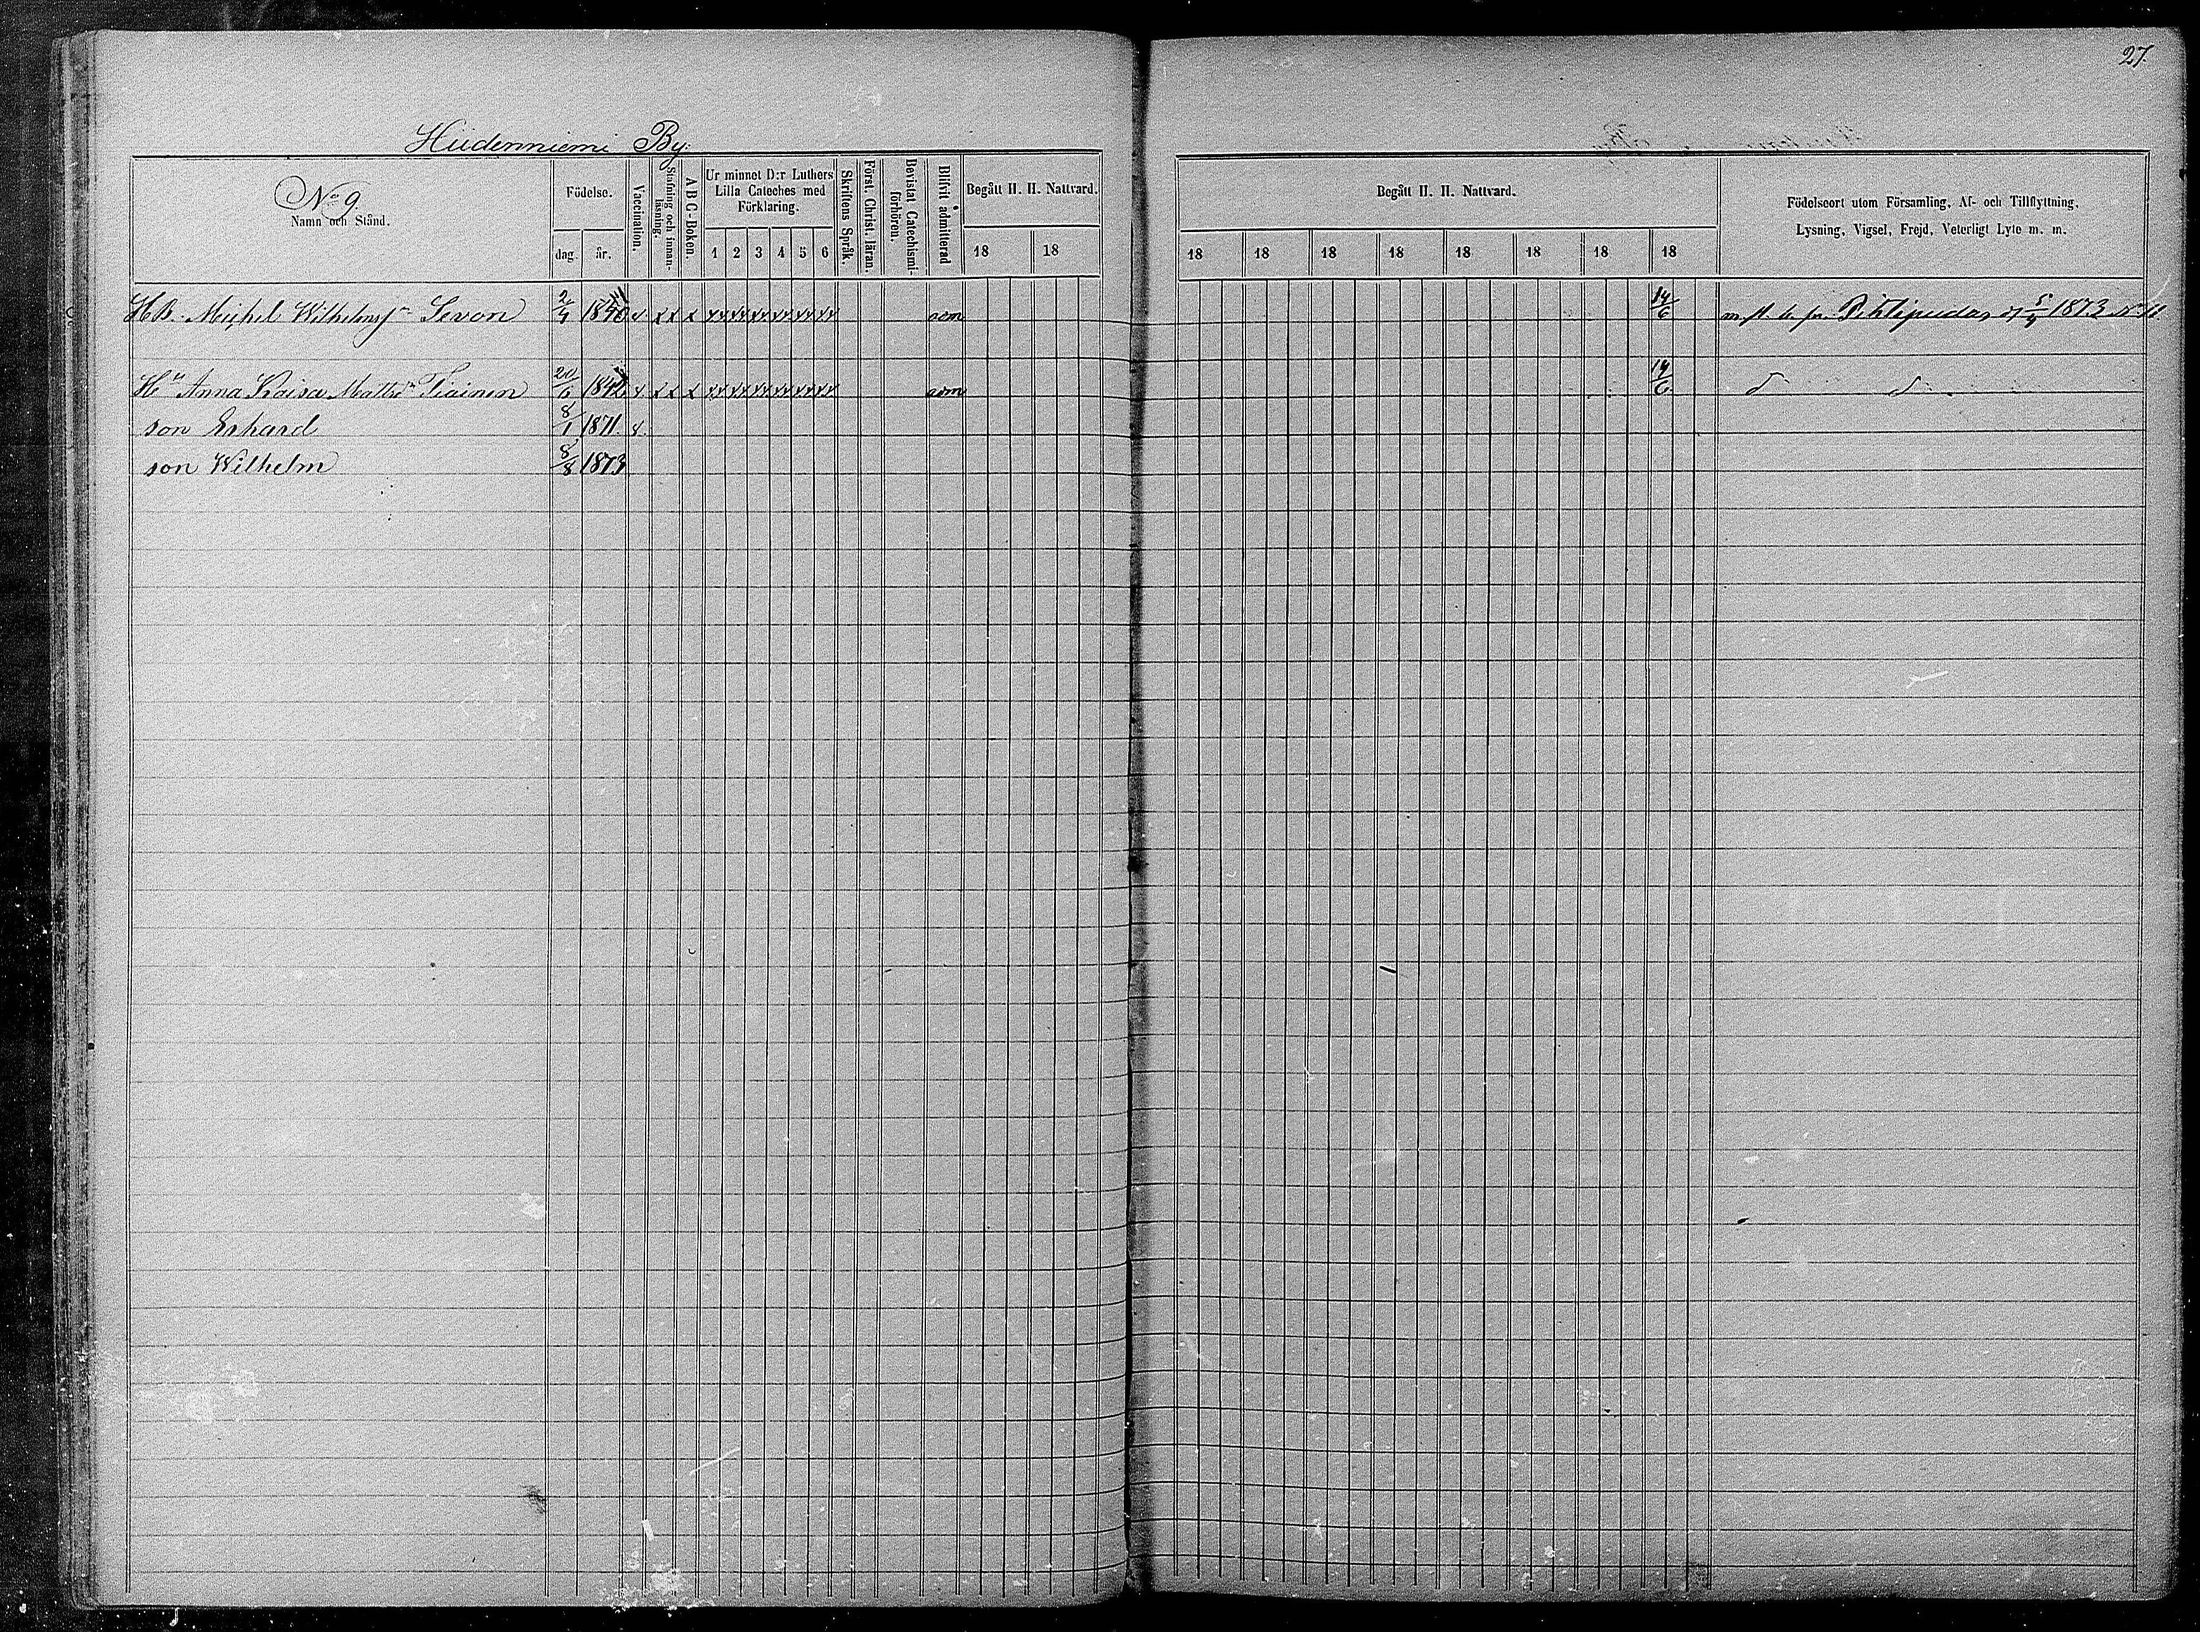 27.
Hiidenniemi By.
No 9.
Namn och Stånd.
Födelse.
dag. år.
Vaccination.
Stafning och innanläsning.
ABC-Boken.
Ur minnet D:r Luthers
Lilla Cateches med
Förklaring.
1 2 3 4 5 6
Skriftens Språk.
Först. Christ. läran.
Bevistat Catechismiförhören.
Blifvit admitterad
Begått H. H. Nattvard.
18 18
Begått H. H. Nattvard.
18 18 18 18 18 18 18 18
Födelseort utom Församling, Af- och Tillflyttning,
Lysning, Vigsel, Frejd, Veterligt Lyte m. m.
HB. Michel Wilhelmsn Sevon 2/4 adm 14/6 Pihtipudas 5/4 1873 No 11.
Hu Anna Kaisa Mattsdr Tiainen 20/6 1842 adm 14/6 d d
son Erhard 8/1 1871.
son Wilhelm 8/8 1873